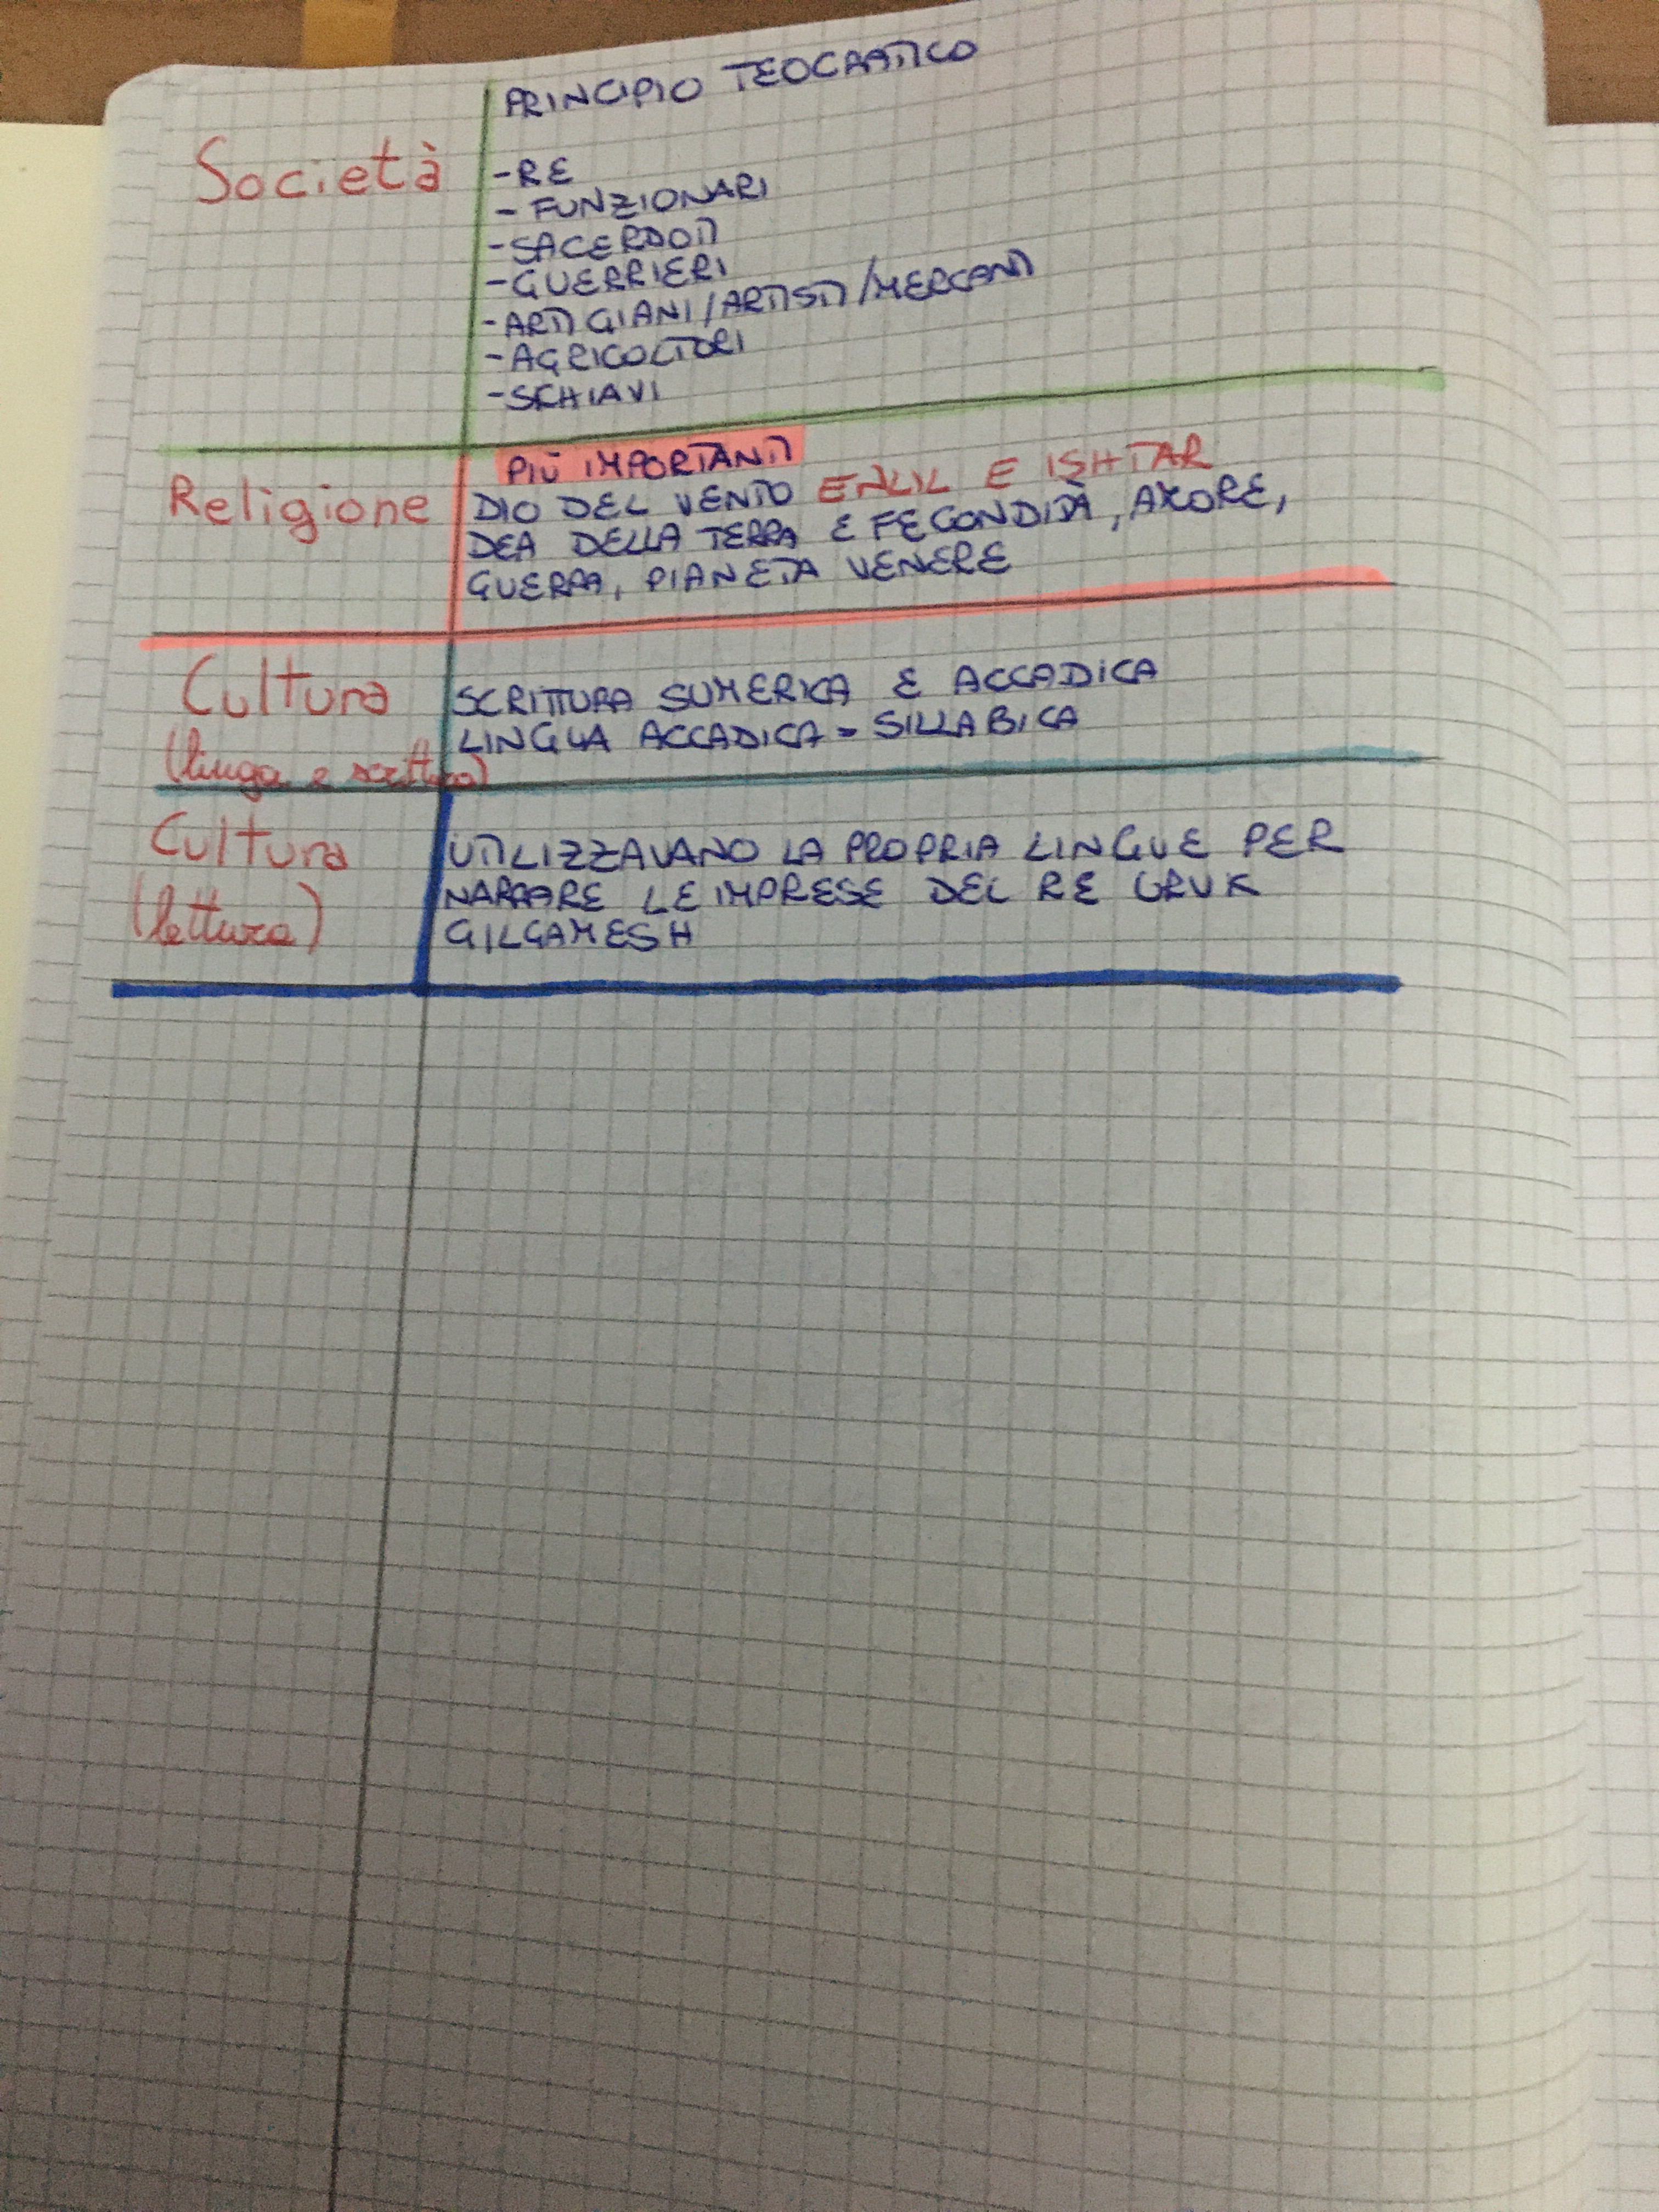 PRINCIPIO TEOCRATICO
Società
-RE
- FUNZIONARI
-SACERDOTI
-GUERRIERI
-ARTIGIANI/ARTISTI/MERCANTI
-AGRICOLTORI
-SCHIAVI
PIÙ IMPORTANTI
Religione
DIO DEL VENTO ENLIL E ISHTAR
DEA DELLA TERRA E FECONDIDÀ, AMORE,
GUERRA, PIANETA VENERE
Cultura
(linga e scrittura)
SCRITTURA SUMERICA E ACCADICA
LINGUA ACCADICA = SILLABICA
Cultura
(lettura)
UTILIZZAVANO LA PROPRIA LINGUE PER
NARRARE LE IMPRESE DEL RE URUK
GILGAMESH